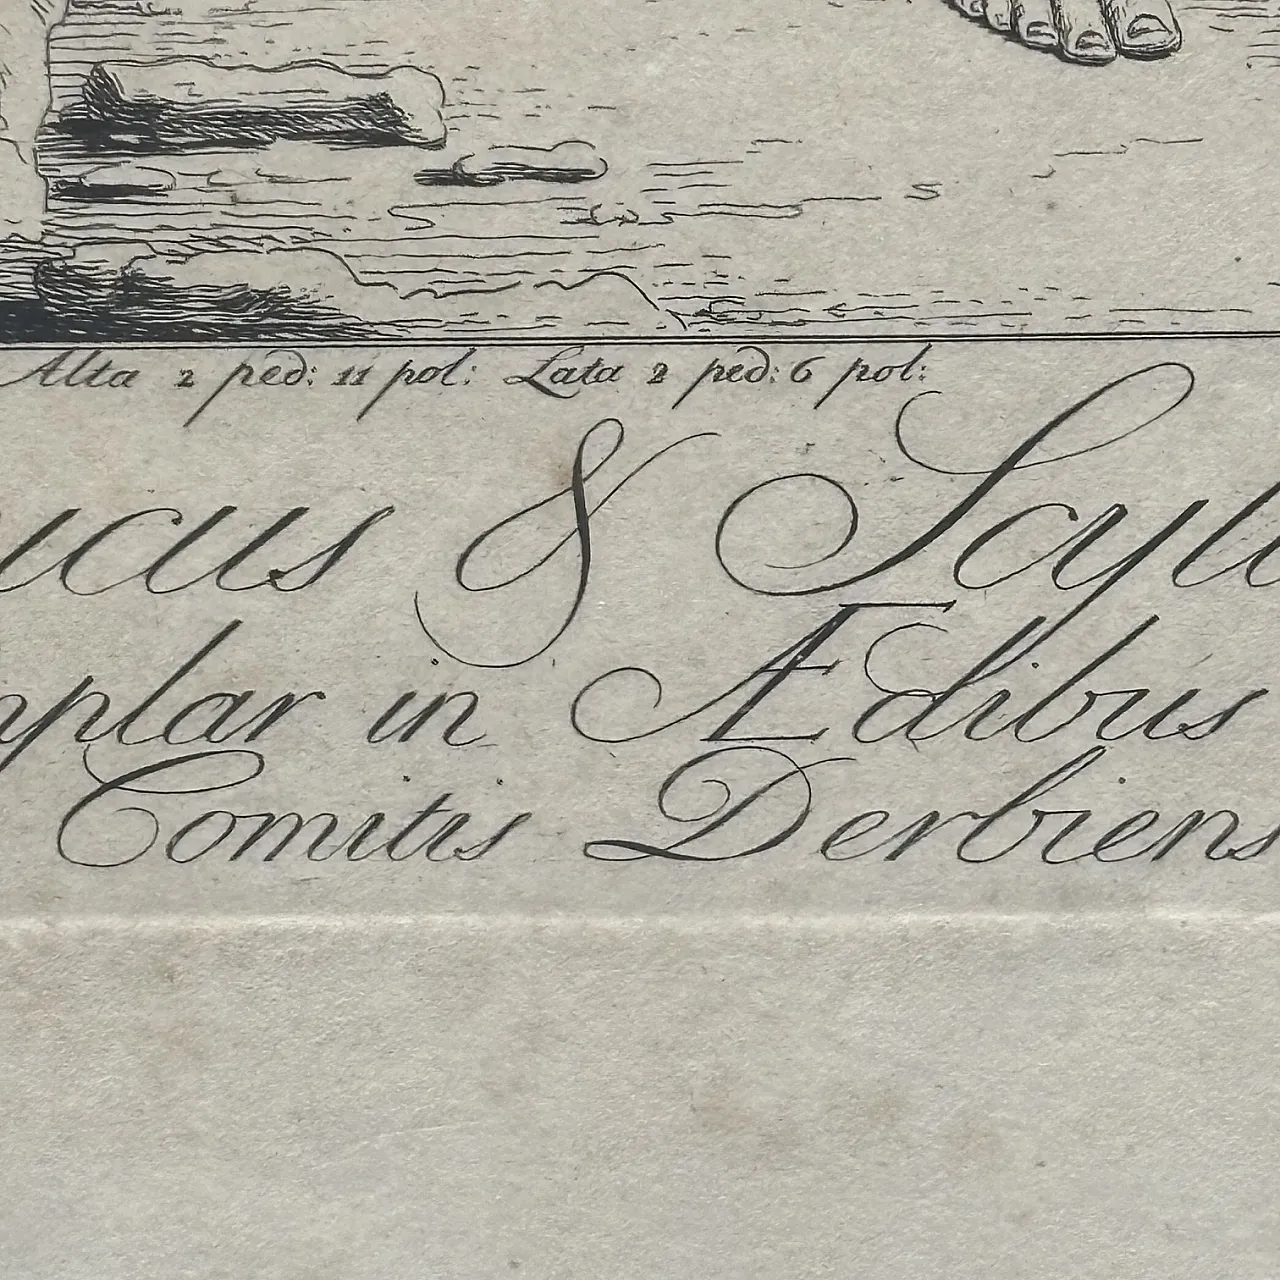 Alta 2 ped: 11 pol: Lata 2 ped: 6 pol:
ucus & Scyll
mplar in Ædibus
Comitis Derbiens